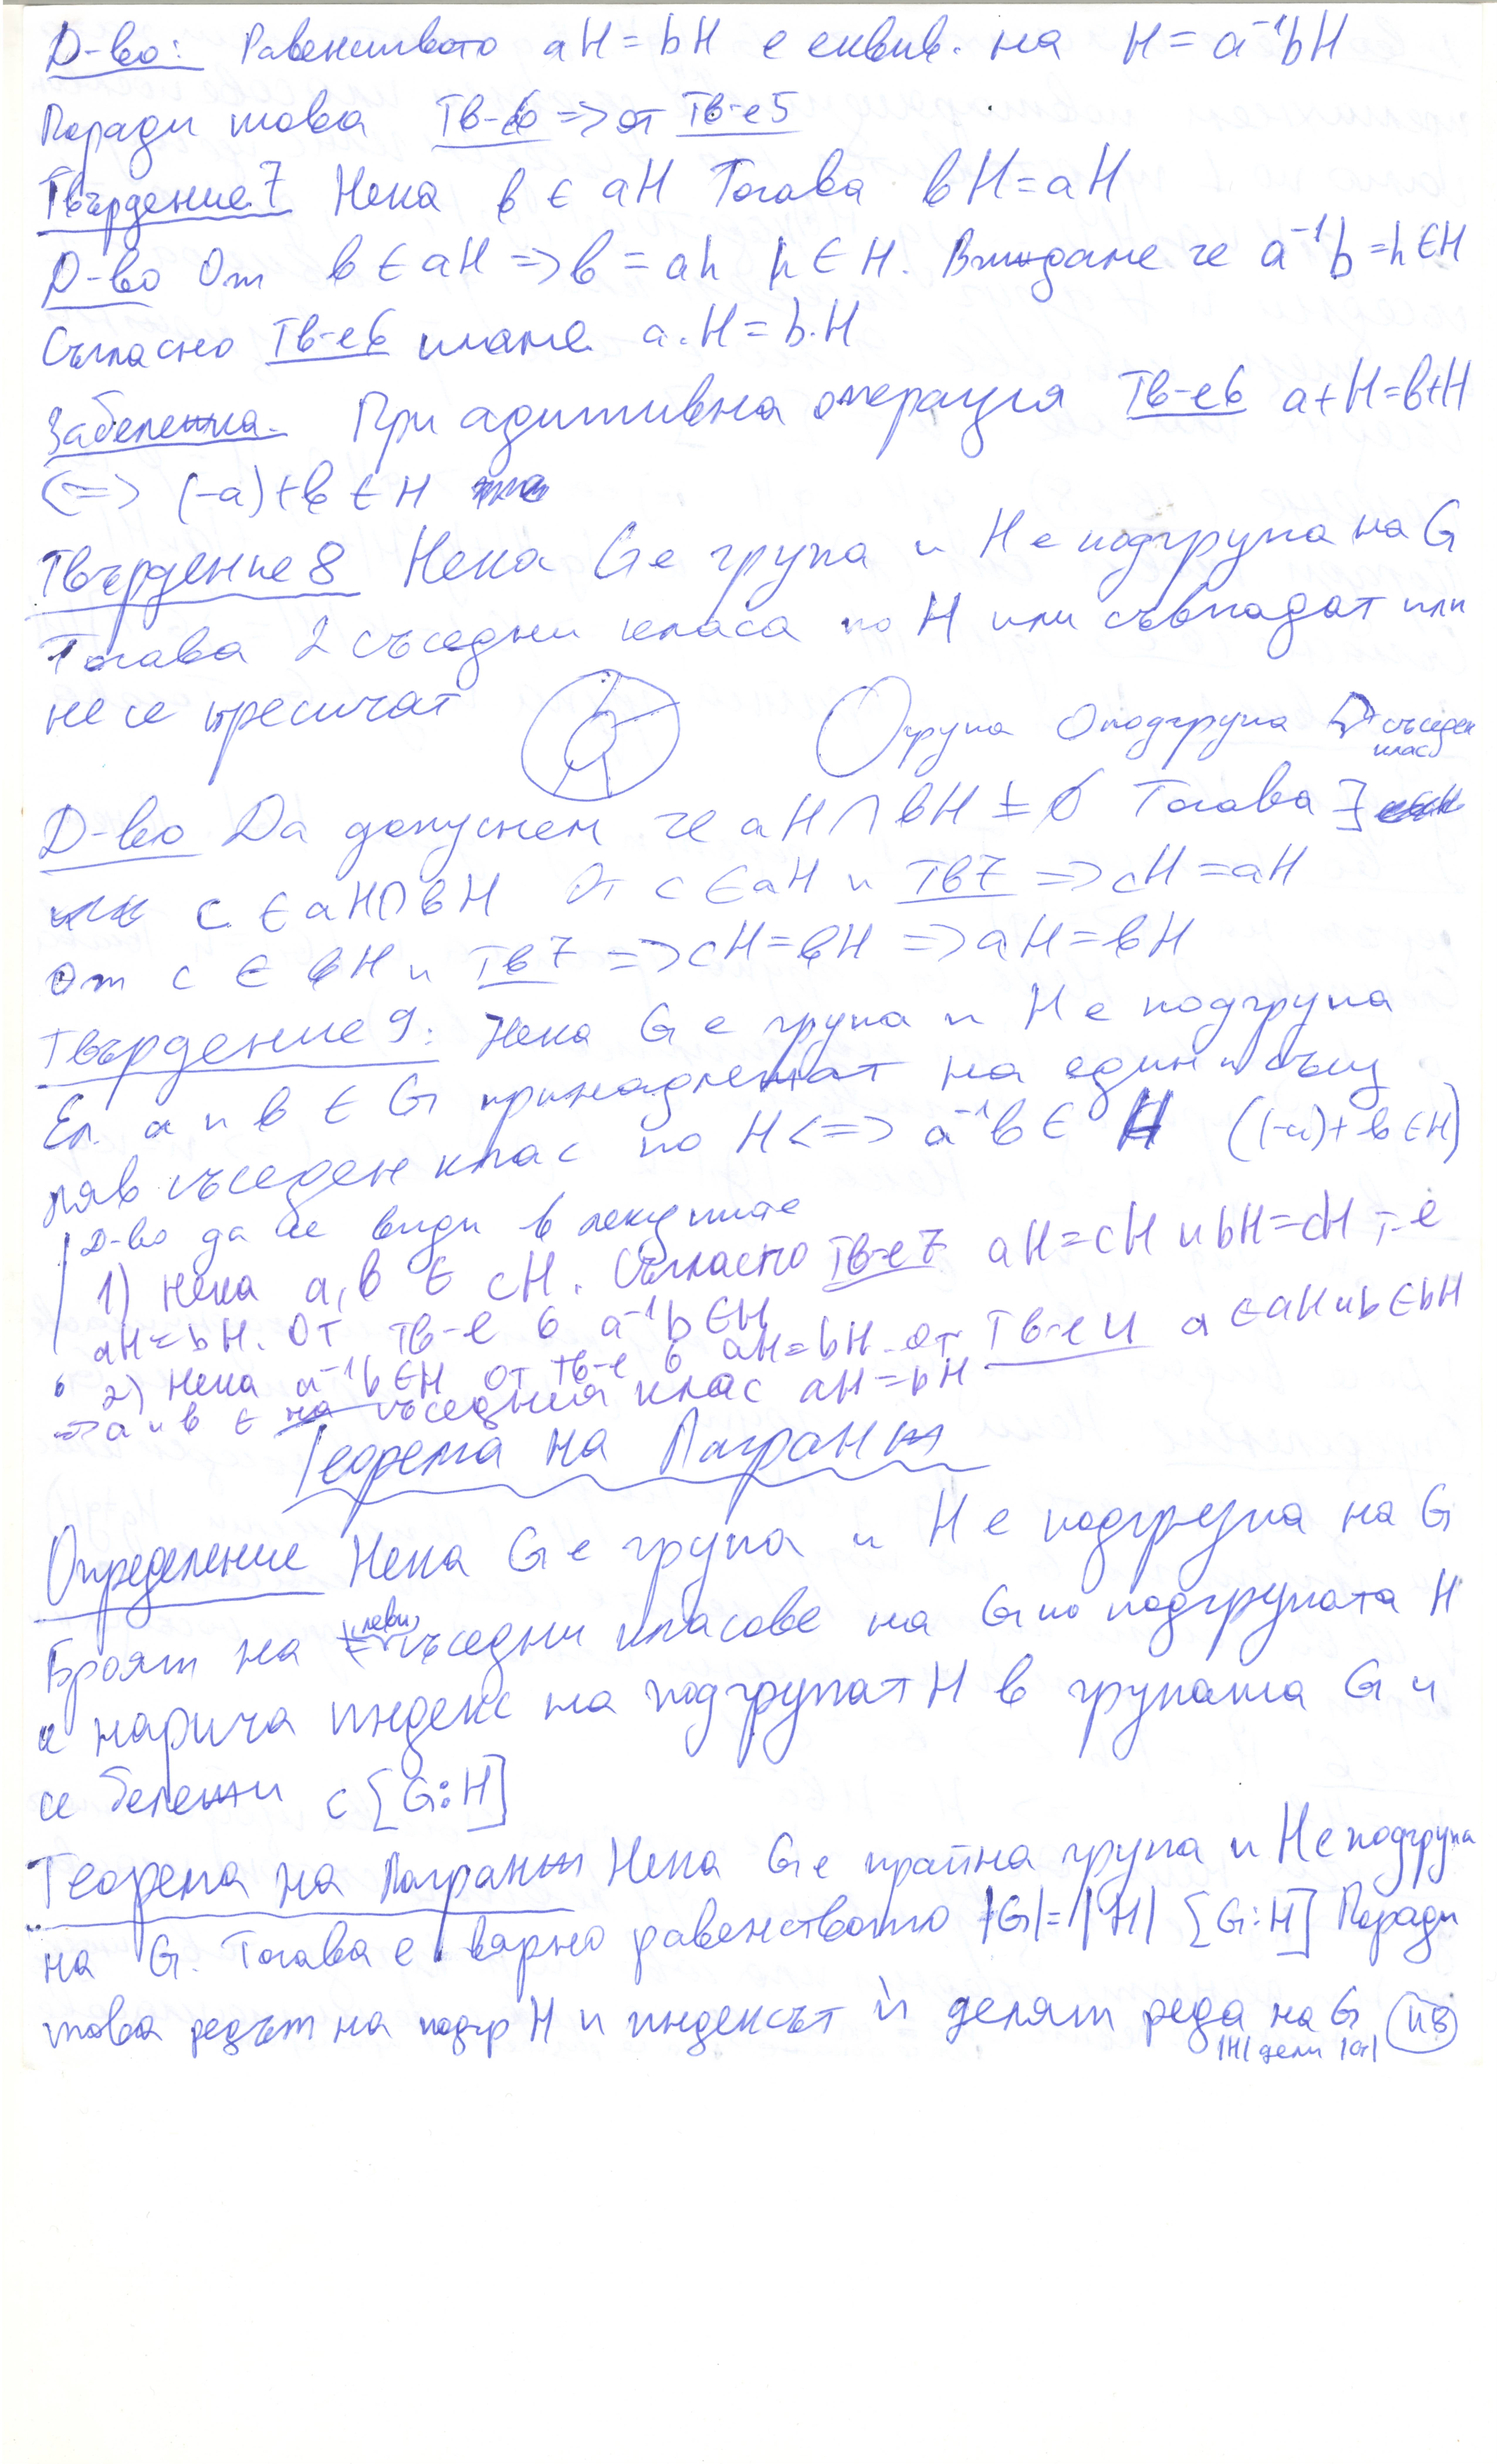 Д-во: Равенството aH = bH е еквив. на H = a⁻¹bH
Поради това Тв-6 => от Тв-е5
Твърдение 7 Нека b ∈ aH Тогава bH = aH
Д-во От b ∈ aH => b = ah h ∈ H. Виждаме че a⁻¹b = h ∈ H
Съгласно Тв-е6 имаме a.H = b.H
Забележка. При адитивна операция Тв-е6 a+H=b+H
<=> (-a)+b ∈ H
Твърдение 8 Нека G е група и H е подгрупа на G
Тогава 2 съседни класа по H или съвпадат или
не се пресичат
група подгрупа съседен
клас
Д-во Да допуснем че aH ∩ bH ≠ ∅ Тогава ∃
c ∈ aH∩bH От c ∈ aH и Тв7 => cH = aH
От c ∈ bH и Тв7 => cH = bH => aH = bH
Твърдение 9: Нека G е група и H е подгрупа
Ел. a и b ∈ G принадлежат на един и същ
ляв съседен клас по H <=> a⁻¹b ∈ H ((-a)+b ∈ H)
Д-во да се види в лекциите
1) Нека a, b ∈ cH. Съгласно Тв-е7 aH = cH и bH = cH т-е
aH = bH. От Тв-е 6 a⁻¹b ∈ H
2) Нека a⁻¹b ∈ H От тв-е 6 aH = bH. От Тв-е 4 a ∈ aH и b ∈ bH
=> a и b ∈ на съседния клас aH = bH
Теорема на Лагранж
Определение Нека G е група и H е подгрупа на G
Броят на леви съседни класове на G по подгрупата H
се нарича индекс на подгрупат H в групата G и
се бележи с [G:H]
Теорема на Лагранж Нека G е крайна група и H е подгрупа
на G. Тогава е вярно равенството |G| = |H| [G:H] Поради
това редът на подгр H и индексът ѝ делят реда на G
|H| дели |G|